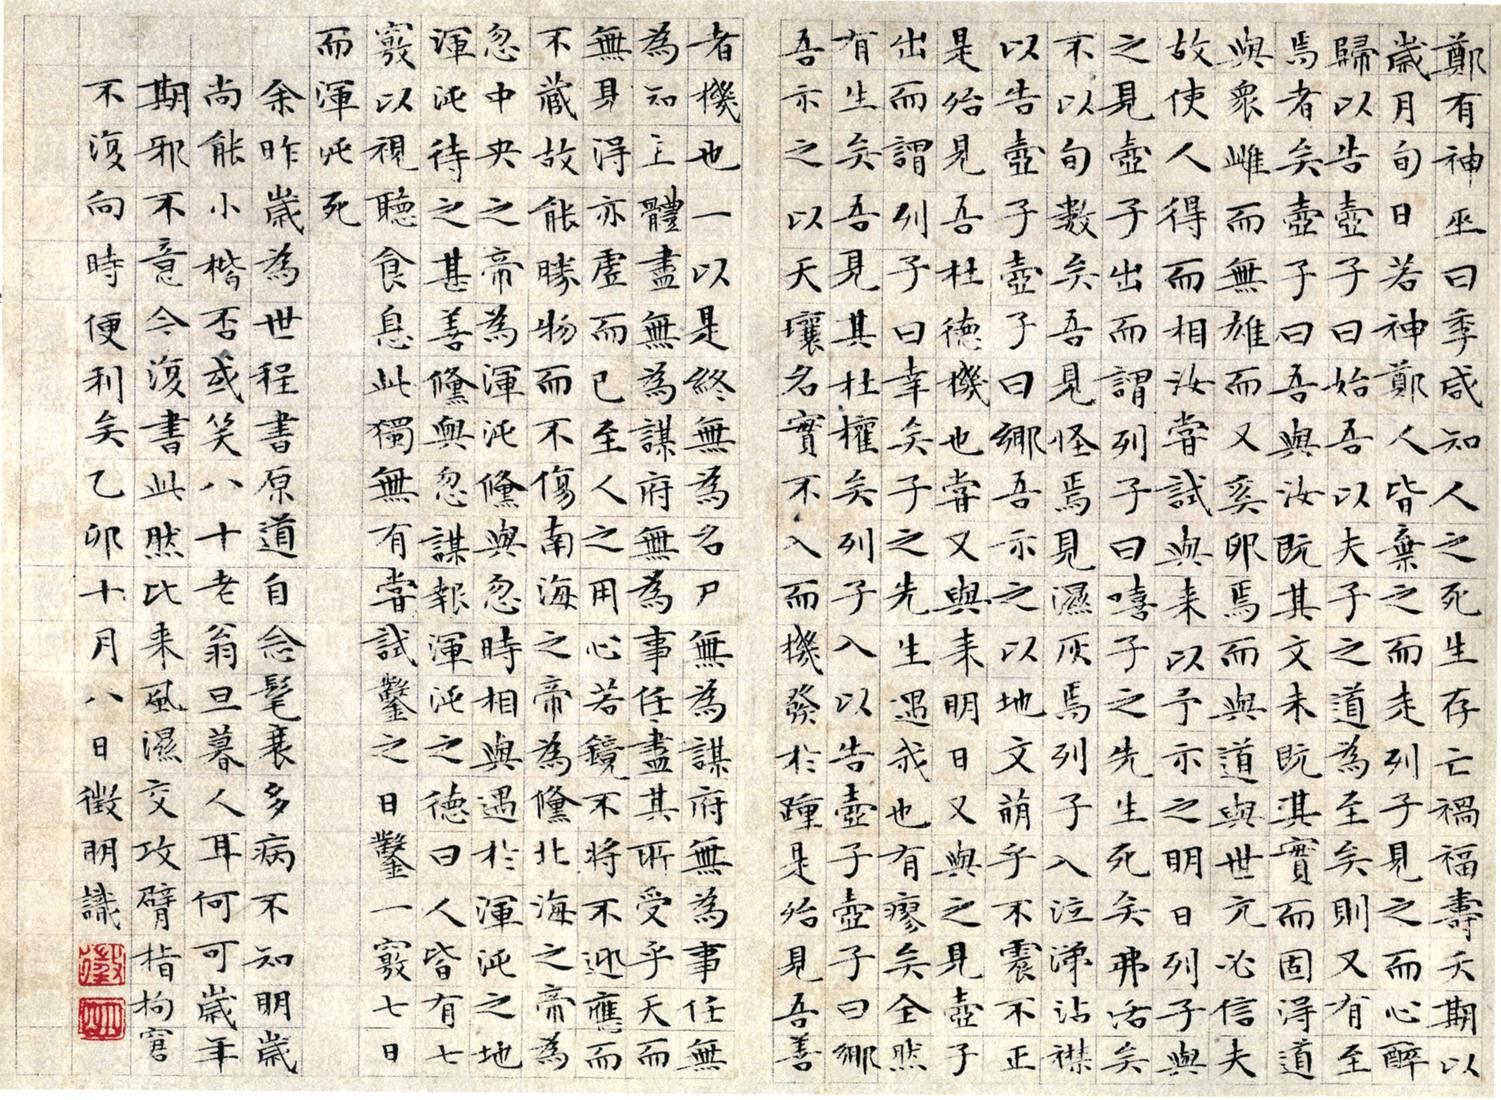 鄭有神巫曰季咸知人之死生存亡禍福壽夭期以
歲月旬日若神鄭人皆棄之而走列子見之而心醉
歸以告壺子曰始吾以夫子之道為至矣則又有至
焉者矣壺子曰吾與汝既其文未既其實而固得道
與衆雌而無雄而又奚卵焉而與道與世亢必信夫
故使人得而相汝嘗試與来以予示之明日列子與
之見壺子出而謂列子曰嘻子之先生死矣弗活矣
不以旬數矣吾見怪焉見濕灰焉列子入泣涕沾襟
以告壺子壺子曰鄉吾示之以地文萌乎不震不正
是殆見吾杜德機也嘗又與来明日又與之見壺子
出而謂列子曰幸矣子之先生遇我也有瘳矣全然
有生矣吾見其杜權矣列子入以告壺子壺子曰鄉
吾示之以天壤名實不入而機發於踵是殆見吾善
者機也一以是終無為名尸無為謀府無為事任無
為知主體盡無為謀府無為事任盡其所受乎天而
無見得亦虛而已至人之用心若鏡不將不迎應而
不藏故能勝物而不傷南海之帝為儵北海之帝為
忽中央之帝為渾沌儵與忽時相與遇於渾沌之地
渾沌待之甚善儵與忽謀報渾沌之德曰人皆有七
竅以視聽食息此獨無有嘗試鑿之日鑿一竅七日
而渾沌死
余昨歲為世程書原道自念髦衰多病不知明歲
尚能小楷否或笑八十老翁旦暮人耳何可歲年
期邪不意今復書此然比来風濕交攻臂指拘窘
不復向時便利矣乙卯十月八日徵明識